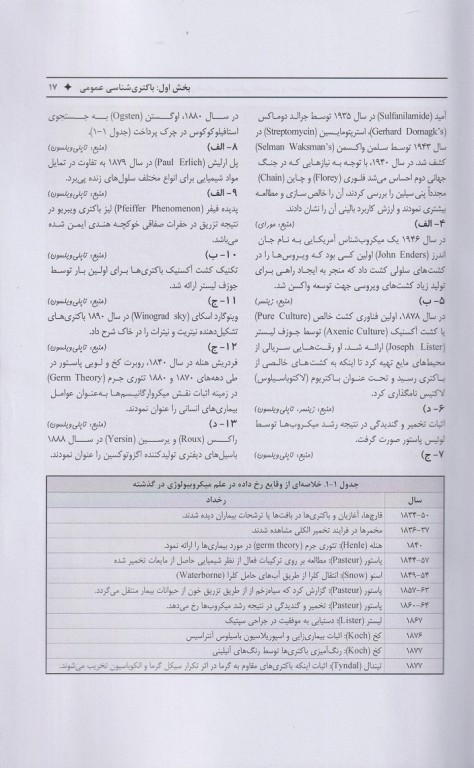 بخش اول: باکتری‌شناسی عمومی ✦ ۱۷
آمید (Sulfanilamide) در سال ۱۹۳۵ توسط جرالد دوماکس
(Gerhard Domagk's)، استرپتومایسین (Streptomycin) در
سال ۱۹۴۳ توسط سلمن واکسمن (Selman Waksman's)
کشف شد. در سال ۱۹۴۰، با توجه به نیازهایی که در جنگ
جهانی دوم احساس می‌شد فلوری (Florey) و چاین (Chain)
مجدداً پنی سیلین را بررسی کردند، آن را خالص‌سازی و مطالعه
بیشتری نمودند و ارزش کاربرد بالینی آن را نشان دادند.
۴- الف) (منبع: مورای)
در سال ۱۹۴۶ یک میکروب‌شناس آمریکایی به نام جان
اندرز (John Enders) اولین کسی بود که ویروس‌ها را در
کشت‌های سلولی کشت داد که منجر به ایجاد راهی برای
تولید زیاد کشت‌های ویروسی جهت توسعه واکسن شد.
۵- ب) (منبع: زینسر)
در سال ۱۸۷۸، اولین فناوری کشت خالص (Pure Culture)
یا کشت آکسنیک (Axenic Culture) توسط جوزف لیستر
(Joseph Lister) ارائه شد. او رقت‌هایی سریالی از
محیط‌های مایع تهیه کرد تا اینکه به کشت‌های خالصی از
باکتری رسید و تحت عنوان باکتریوم (لاکتوباسیلوس)
لاکتیس نامگذاری کرد.
۶- د) (منبع: زینسر، تاپلی‌ویلسون)
اثبات تخمیر و گندیدگی در نتیجه رشد میکروب‌ها توسط
لوئیس پاستور صورت گرفت.
۷- ج) (منبع: تاپلی‌ویلسون)
در سال ۱۸۸۰، اوگستن (Ogsten) به جستجوی
استافیلوکوکوس در چرک پرداخت (جدول ۱-۱).
۸- الف) (منبع: تاپلی‌ویلسون)
پل ارلیش (Paul Erlich) در سال ۱۸۷۹ به تفاوت در تمایل
مواد شیمیایی برای انواع مختلف سلول‌های زنده پی‌برد.
۹- الف) (منبع: تاپلی‌ویلسون)
پدیده فیفر (Pfeiffer Phenomenon) لیز باکتری ویبریو در
نتیجه تزریق در حفرات صفاقی خوکچه هندی ایمن شده
می‌باشد.
۱۰- ب) (منبع: تاپلی‌ویلسون)
تکنیک کشت آکسنیک باکتری‌ها برای اولین بار توسط
جوزف لیستر ارائه شد.
۱۱- ج) (منبع: تاپلی‌ویلسون)
وینوگارد اسکای (Winograd sky) در سال ۱۸۹۰ باکتری‌های
تشکیل‌دهنده نیتریت و نیترات را در خاک شرح داد.
۱۲- ج) (منبع: تاپلی‌ویلسون)
فردریش هنله در سال ۱۸۴۰، روبرت کخ و لویی پاستور در
طی دهه‌های ۱۸۷۰ و ۱۸۸۰ تئوری جرم (Germ Theory)
در زمینه اثبات نقش میکروارگانیسم‌ها به‌عنوان عوامل
بیماری‌های انسانی را عنوان نمودند.
۱۳- د) (منبع: تاپلی‌ویلسون)
راکس (Roux) و یرسین (Yersin) در سال ۱۸۸۸
باسیل‌های دیفتری تولیدکننده اگزوتوکسین را عنوان نمودند.
جدول ۱-۱. خلاصه‌ای از وقایع رخ داده در علم میکروبیولوژی در گذشته
سال رخداد
۱۸۳۴-۵۰ قارچ‌ها، آغازیان و باکتری‌ها در بافت‌ها یا ترشحات بیماران دیده شدند.
۱۸۳۶-۳۷ مخمرها در فرایند تخمیر الکلی مشاهده شدند.
۱۸۴۰ هنله (Henle): تئوری جرم (germ theory) در مورد بیماری‌ها را ارائه نمود.
۱۸۴۴-۵۷ پاستور (Pasteur): مطالعه بر روی ترکیبات فعال از نظر شیمیایی حاصل از مایعات تخمیر شده
۱۸۴۹-۵۴ اسنو (Snow): انتقال کلرا از طریق آب‌های حامل کلرا (Waterborne)
۱۸۵۷-۶۳ پاستور (Pasteur): گزارش کرد که سیاه‌زخم از از طریق تزریق خون از حیوانات بیمار منتقل می‌گردد.
۱۸۶۰-۶۴ پاستور (Pasteur): تخمیر و گندیدگی در نتیجه رشد میکروب‌ها رخ می‌دهد.
۱۸۶۷ لیستر (Lister): دستیابی به موفقیت در جراحی سپتیک
۱۸۷۶ کخ (Koch): اثبات بیماری‌زایی و اسپورولاسیون باسیلوس آنتراسیس
۱۸۷۷ کخ (Koch): رنگ‌آمیزی باکتری‌ها توسط رنگ‌های آنیلینی
۱۸۷۷ تیندال (Tyndal): اثبات اینکه باکتری‌های مقاوم به گرما در اثر تکرار سیکل گرما و انکوباسیون تخریب می‌شوند.